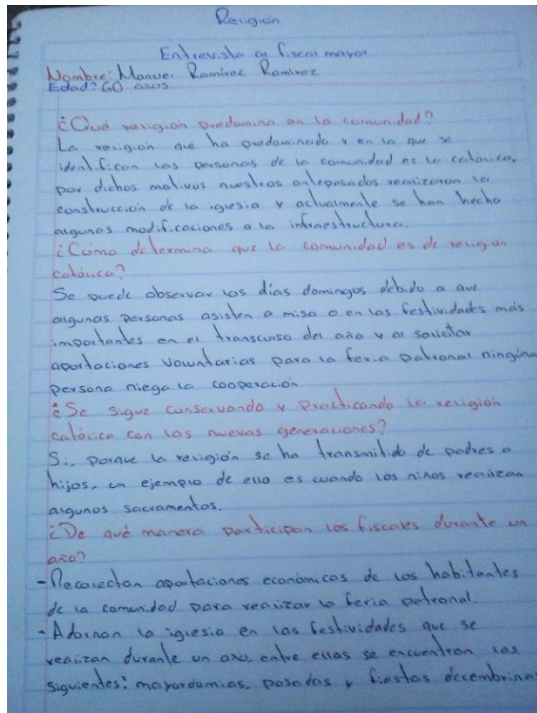 Religión
Entrevista al fiscal mayor
Nombre: Manuel Ramírez Ramírez
Edad: 60 años
¿Qué religión predomina en la comunidad?
La religión que ha predominado y en la que se
identifican las personas de la comunidad es la católica,
por dichos motivos nuestros antepasados realizaron la
construcción de la iglesia y actualmente se han hecho
algunas modificaciones a la infraestructura.
¿Cómo determina que la comunidad es de religión
católica?
Se puede observar los días domingos debido a que
algunas personas asisten a misa o en las festividades más
importantes en el transcurso del año y al solicitar
aportaciones voluntarias para la feria patronal ninguna
persona niega la cooperación
¿Se sigue conservando y practicando la religión
católica con las nuevas generaciones?
Si, porque la religión se ha transmitido de padres a
hijos, un ejemplo de ello es cuando los niños realizan
algunos sacramentos.
¿De qué manera participan los fiscales durante un
año?
- Recolectan aportaciones económicas de los habitantes
de la comunidad para realizar la feria patronal.
- Adornan la iglesia en las festividades que se
realizan durante un año, entre ellas se encuentran las
siguientes: mayordomias, posadas y fiestas decembrinas